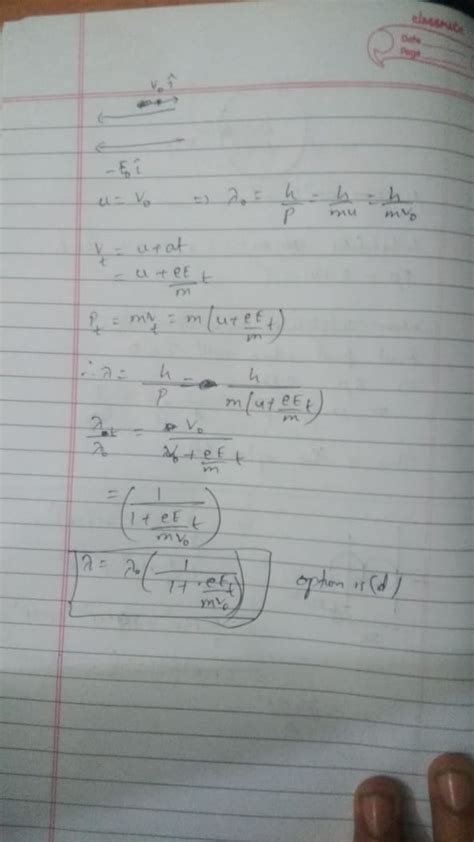 classmate
Date
Page
v₀ î
-E₀ î
u = v₀ ⇒ λ₀ = h/p = h/mu = h/mv₀
v_t = u + at
= u + eE/m t
p_t = mv_t = m(u + eE/m t)
∴ λ = h/p = h/m(u + eE/m t)
λ_t/λ₀ = v₀/v₀ + eE/m t
= (1/1 + eE/mv₀ t)
λ = λ₀ (1/1 + eE/mv₀ t) option is (d)